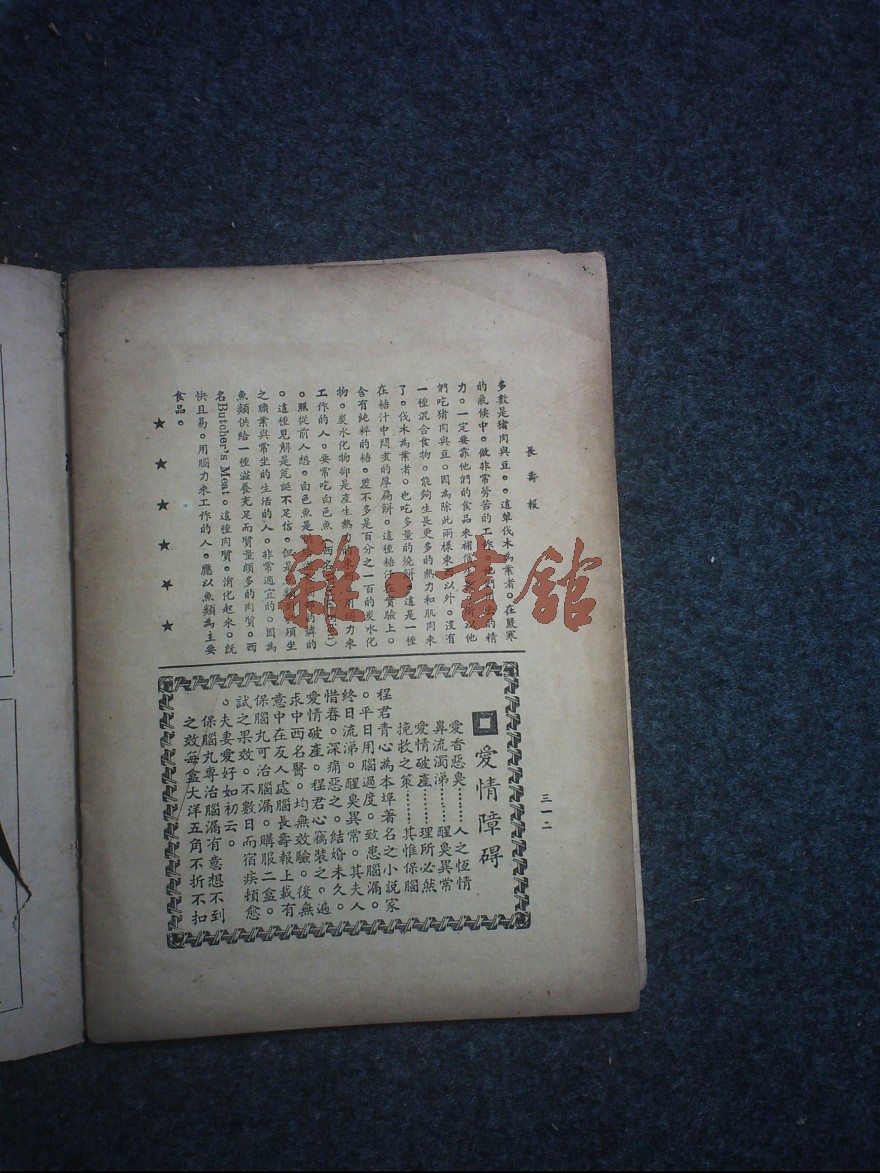 長壽報
三一二
多數是猪肉與豆。。這輩伐木為業者。在嚴寒
的氣候中。做非常勞苦的工作。
力。一定要靠他們的食品來補償。
們吃猪肉與豆。因為除此兩樣東西以外。沒有
一種混合食物。能夠生長更多的熱力和肌肉來
了。伐木為業者。也吃多量的燒餅。這是一種
在糖汁中悶煑的厚扁餅。這種糖汁在實驗上。
含有純粹的糖。差不多是百分之一百的炭水化
物。炭水化物卻是產生熱力的
工作的人。要常吃白色魚
。照從前人想。白色魚是
。這種見解是荒誕不足信。但是
之職業與常坐的生活的人。非常適宜的。因為
魚類供給一種滋養充足而質量頗多的肉質。西
名Butcher's Meat。這種肉質。消化起來。旣
快且易。用腦力來工作的人。應以魚類為主要
食品。
★★★★★★
愛情障碍
愛香惡臭………人之恆情
鼻流濁涕………醒臭異常
愛情破產………理所必然
挽救之策………其惟保腦
程君青心為本埠著名之小說家
。平日用腦過度。致患腦漏。
終日流涕。醒臭異常。其夫人
惜春。深痛惡之。結婚未久。
愛情破產。程君心竊裝之。遍
求中西名醫。均無效驗。後無
意中在友人處腦長壽報上載有
保腦丸可治腦漏。購服二盒。
試之果效。不數日而宿疾頓愈
。夫妻愛好如初云。
保腦丸專治腦漏有意想不到
之效每盒大洋五角不折不扣
雜·書館